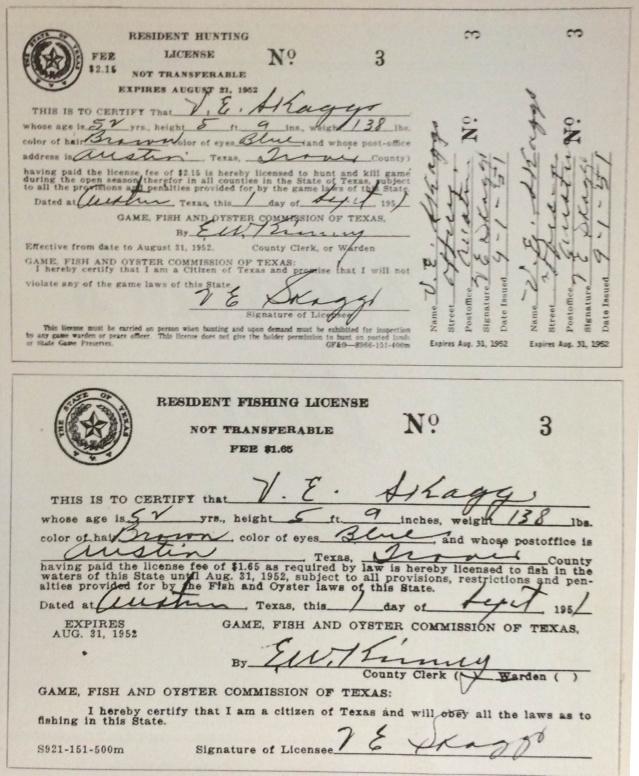 THE STATE OF TEXAS
RESIDENT HUNTING
LICENSE
FEE
$2.15
Nº 3
NOT TRANSFERABLE
EXPIRES AUGUST 31, 1952
THIS IS TO CERTIFY That V. E. Skaggs
whose age is 52 yrs., height 5 ft. 9 ins., weight 138 lbs.
color of hair Brown color of eyes Blue (and whose post-office
address is Austin Texas, Travis County)
having paid the license fee of $2.15 is hereby licensed to hunt and kill game
during the open seasons therefor in all counties in the State of Texas, subject
to all the provisions and penalties provided for by the game laws of this State.
Dated at Austin Texas, this 1 day of Sept 1951
GAME, FISH AND OYSTER COMMISSION OF TEXAS,
By E.W. Kinney
Effective from date to August 31, 1952. County Clerk, or Warden
GAME, FISH AND OYSTER COMMISSION OF TEXAS:
I hereby certify that I am a Citizen of Texas and promise that I will not
violate any of the game laws of this State.
V E Skaggs
Signature of Licensee
This license must be carried on person when hunting and upon demand must be exhibited for inspection
by any game warden or peace officer. This license does not give the holder permission to hunt on posted lands
or State Game Preserves. 151-400m
3
Nº
Name V. E. Skaggs
Street
Postoffice Austin
Signature V E Skaggs
Date Issued 9-1-51
Expires Aug. 31, 1952
3
Nº
Name V. E. Skaggs
Street
Postoffice Austin
Signature V E Skaggs
Date Issued 9-1-51
Expires Aug. 31, 1952
THE STATE OF TEXAS
RESIDENT FISHING LICENSE
NOT TRANSFERABLE
FEE $1.65
Nº 3
THIS IS TO CERTIFY that V. E. Skaggs
whose age is 52 yrs., height 5 ft. 9 inches, weight 138 lbs.
color of hair Brown, color of eyes Blue, and whose postoffice is
Austin Texas, Travis County
having paid the license fee of $1.65 as required by law is hereby licensed to fish in the
waters of this State until Aug. 31, 1952, subject to all provisions, restrictions and pen-
alties provided for by the Fish and Oyster laws of this State.
Dated at Austin, Texas, this 1 day of Sept 1951
EXPIRES
AUG. 31, 1952
GAME, FISH AND OYSTER COMMISSION OF TEXAS,
By E.W. Kinney
County Clerk (✓) Warden ( )
GAME, FISH AND OYSTER COMMISSION OF TEXAS:
I hereby certify that I am a citizen of Texas and will obey all the laws as to
fishing in this State.
S921-151-500m Signature of Licensee V E Skaggs